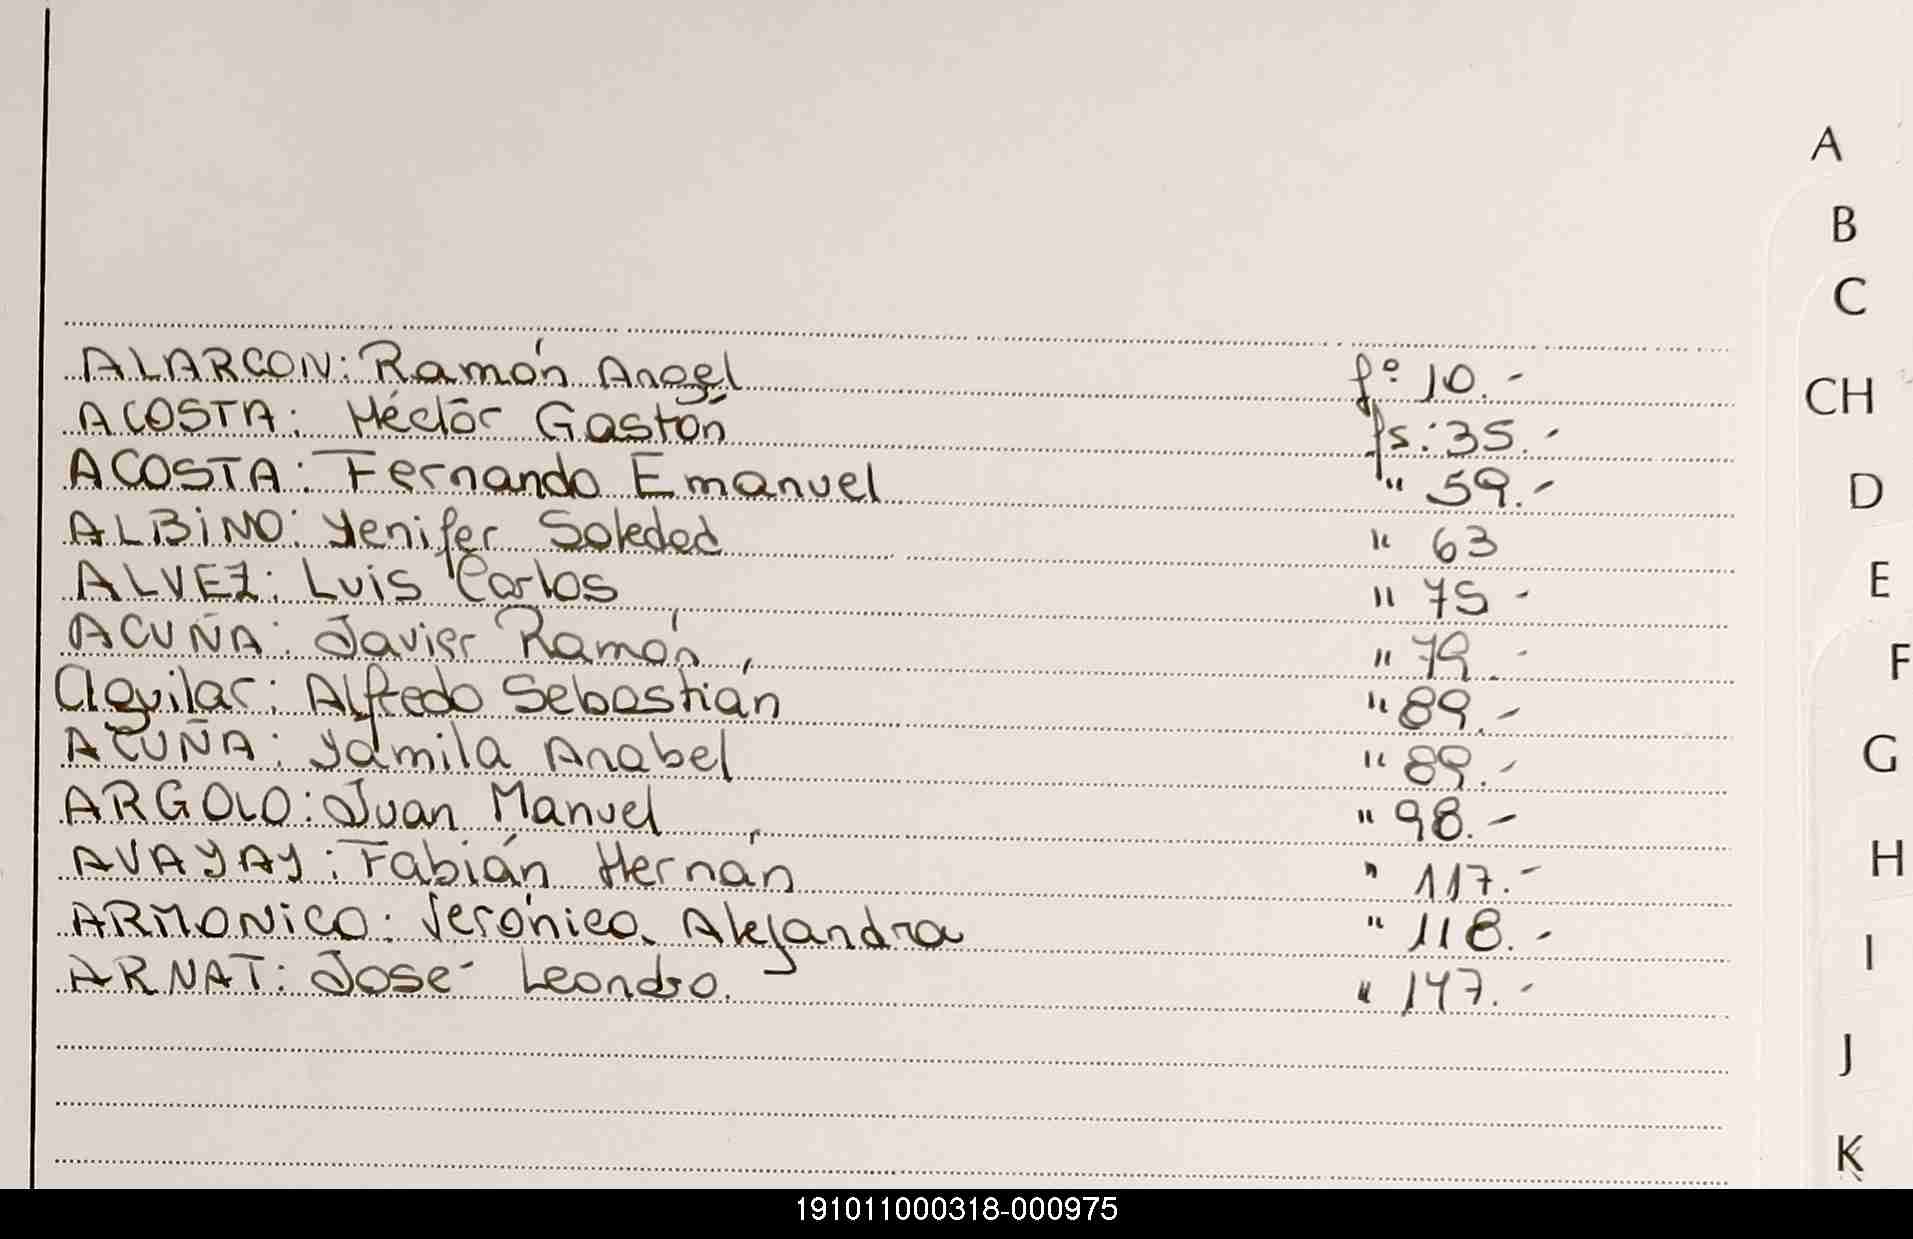 ALARCON: Ramón Angel fº 10.-
ACOSTA: Héctór Gastón fs: 35.-
ACOSTA: Fernando Emanuel " 59.-
ALBiNO: Yenifer Soledad " 63
ALVEZ: Luis Carlos " 75 -
ACUÑA: Javier Ramón " 79.-
Aguilar: Alfredo Sebastián " 89.-
ACUÑA: Yamila Anabel " 89.-
ARGOLO: Juan Manuel " 98.-
AVAYAY: Fabián Hernán " 117.-
ARMONiCO: Verónica Alejandra " 118.-
ARNAT: José Leandro. " 147.-
A
B
C
CH
D
E
F
G
H
I
J
K
191011000318-000975